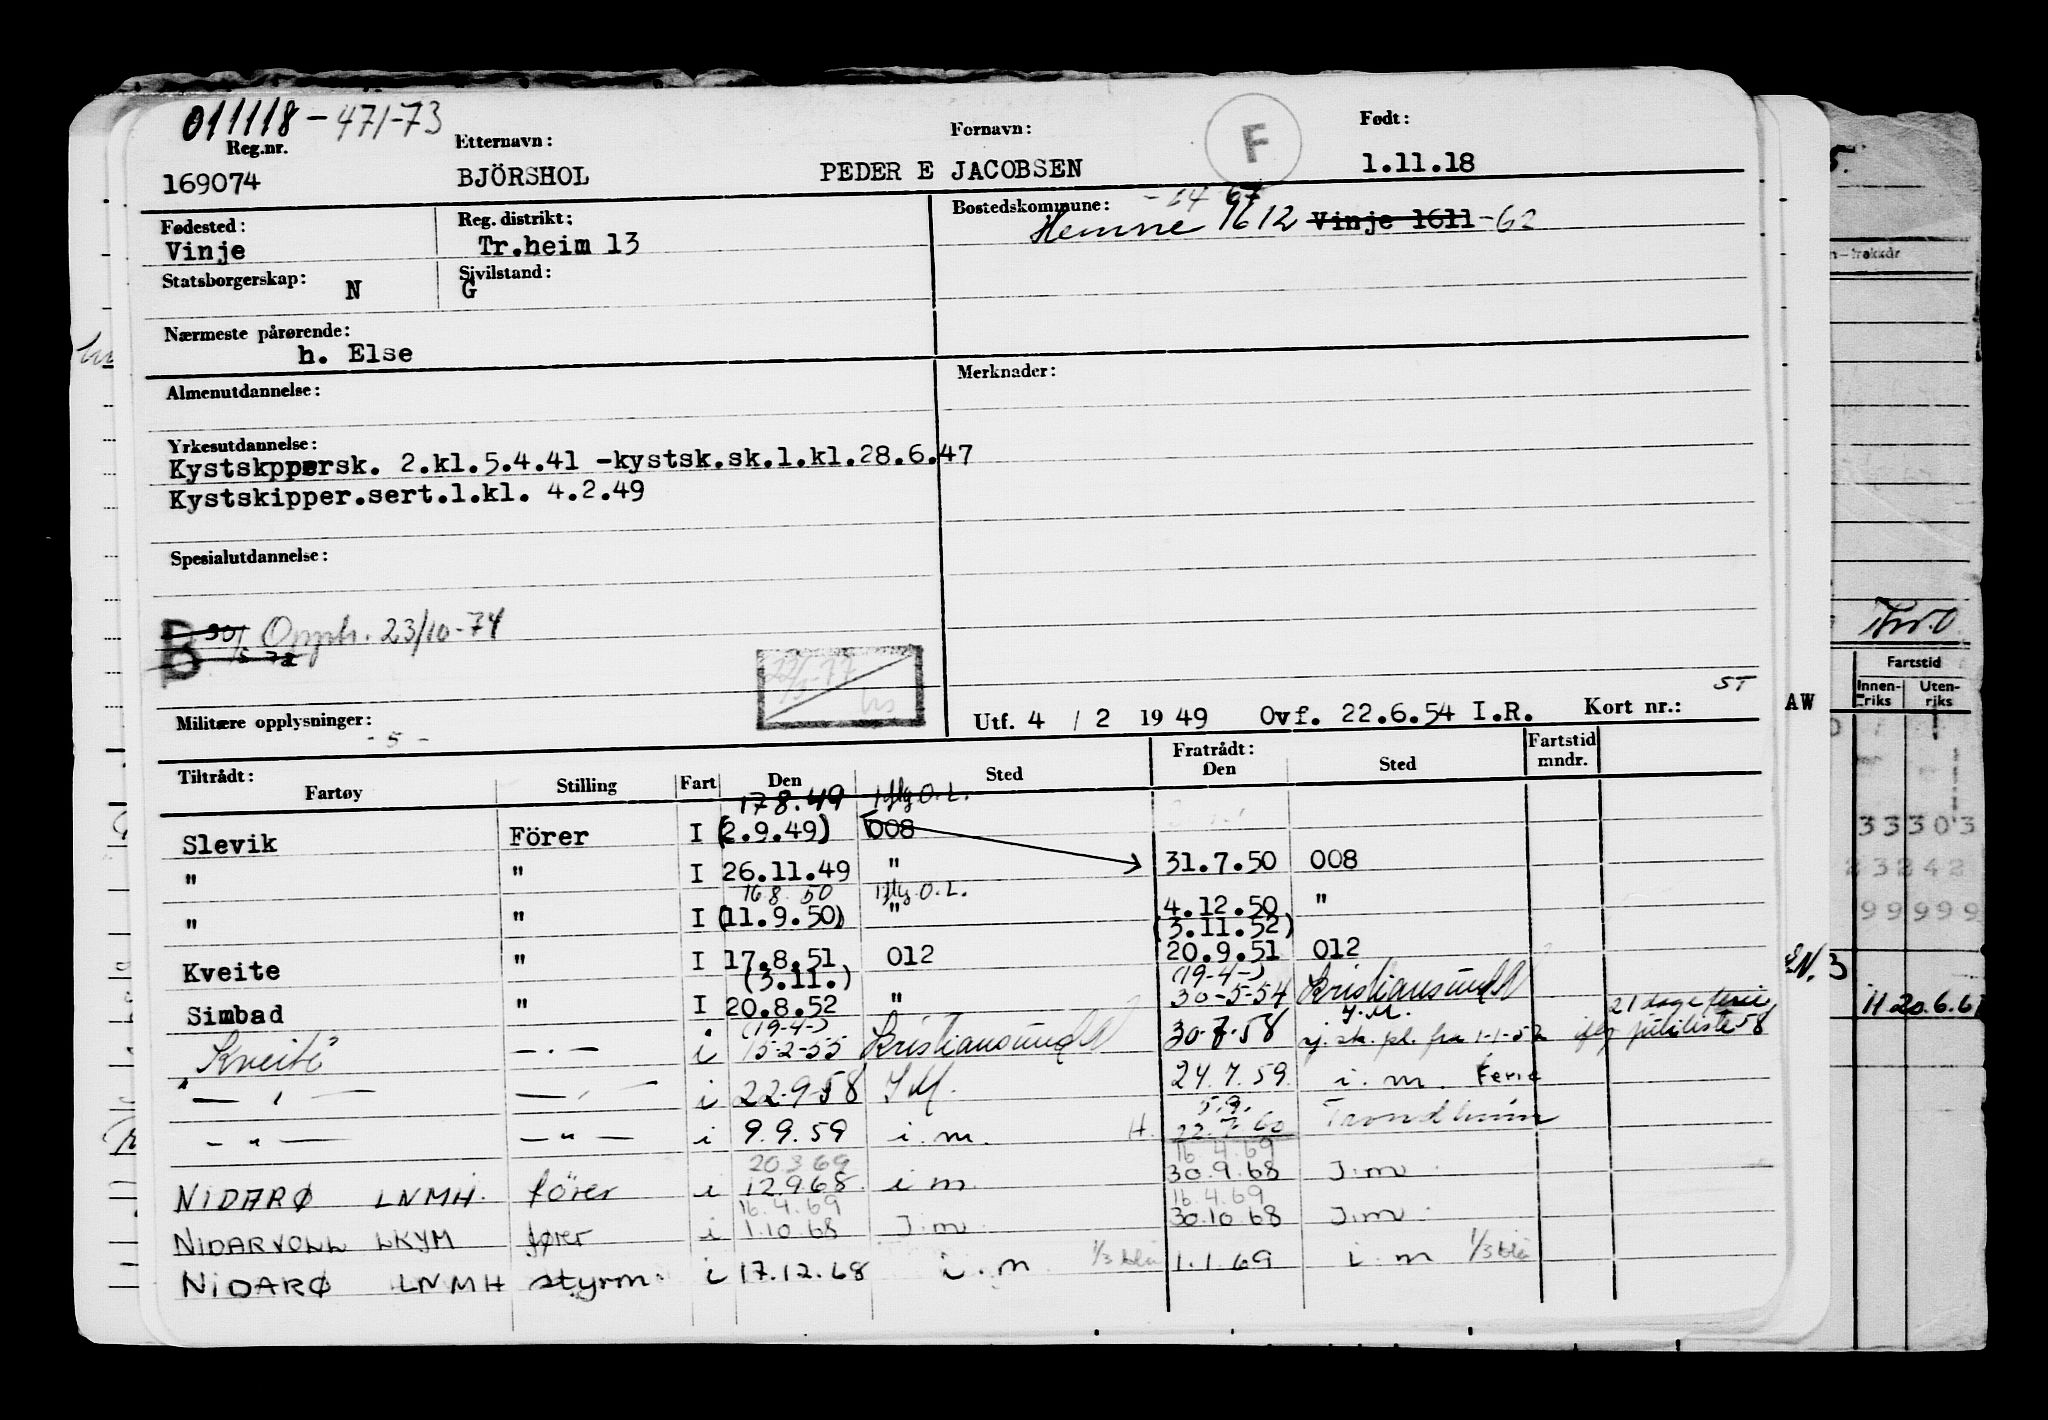 011118-471-73
Reg.nr. Etternavn: Fornavn: F Født:
169074 BJÖRSHOL PEDER E JACOBSEN 1.11.18
Fødested: Reg. distrikt: Bostedskommune: -64 67
Vinje Tr.heim 13 Hemne 1612 Vinje 1611 -62
Statsborgerskap: N Sivilstand: G
Nærmeste pårørende:
h. Else
Almenutdannelse: Merknader:
Yrkesutdannelse:
Kystskppersk. 2.kl.5.4.41 -kystsk.sk.1.kl.28.6.47
Kystskipper.sert.1.kl. 4.2.49
Spesialutdannelse:
B Opph. 23/10-74
ST
Militære opplysninger: Utf. 4 / 2 19 49 Ovf. 22.6.54 I.R. Kort nr.: AW
- 5 -
Tiltrådt: Fratrådt: Fartstid
Fartøy Stilling Fart Den Sted Den Sted mndr.
17 8. 49 iflg O.L.
Slevik Förer I (2.9.49) 008
" " I 26.11.49 " 31.7.50 008
16.8. 50 iflg O.L.
" " I (11.9.50) " 4.12.50 "
(3.11.52)
Kveite " I 17.8.51 012 20.9.51 012
(3.11.) (19-4-)
Simbad " I 20.8.52 " 30-5-54 Kristiansund N
(19-4-) I.M. 21 dage ferie
"Kveite" -.- i 15-2-55 Kristiansund N 30-7-58 fra 1-1-52 iflg juliliste 58
i 22-9-58 I M. 24.7.59 i.m. Ferie
5.9.
— " — — " — i 9.9.59 i.m. H. 22.7.60 Trondheim
20 3 69 16 4.69
NIDARØ LNMH. förer i 12.9.68. i m. 30.9.68 I.m.
16.4.69 16.4.69
NIDARVOLL LKYM fører i 1.10.68 I.m. 30.10.68 I.m.
NIDARØ LNMH styrm. i 17.12.68 i.m. 1/3 blå 1.1.69 i.m 1/3 blå
5.
Fartstid
Innen-
riks
Uten-
riks
3 3 3 0 3
2 3 2 4 2
9 9 9 9 9
H 20.6.61